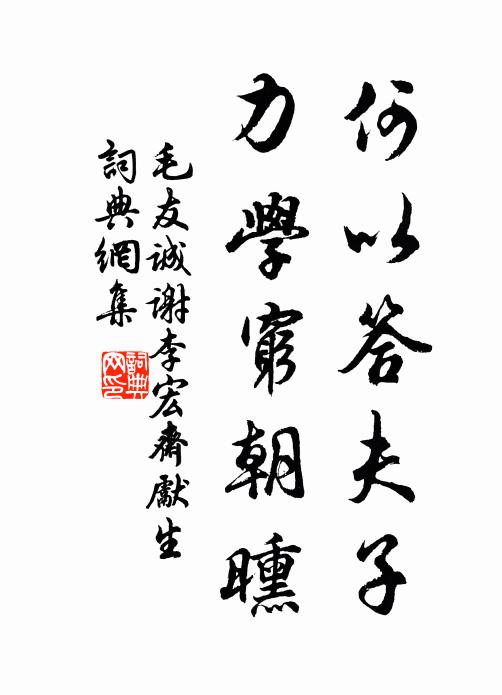 何以答夫子
力學窮朝曛
毛友诚谢李宏齋獻生
詞典網集
詞典網印